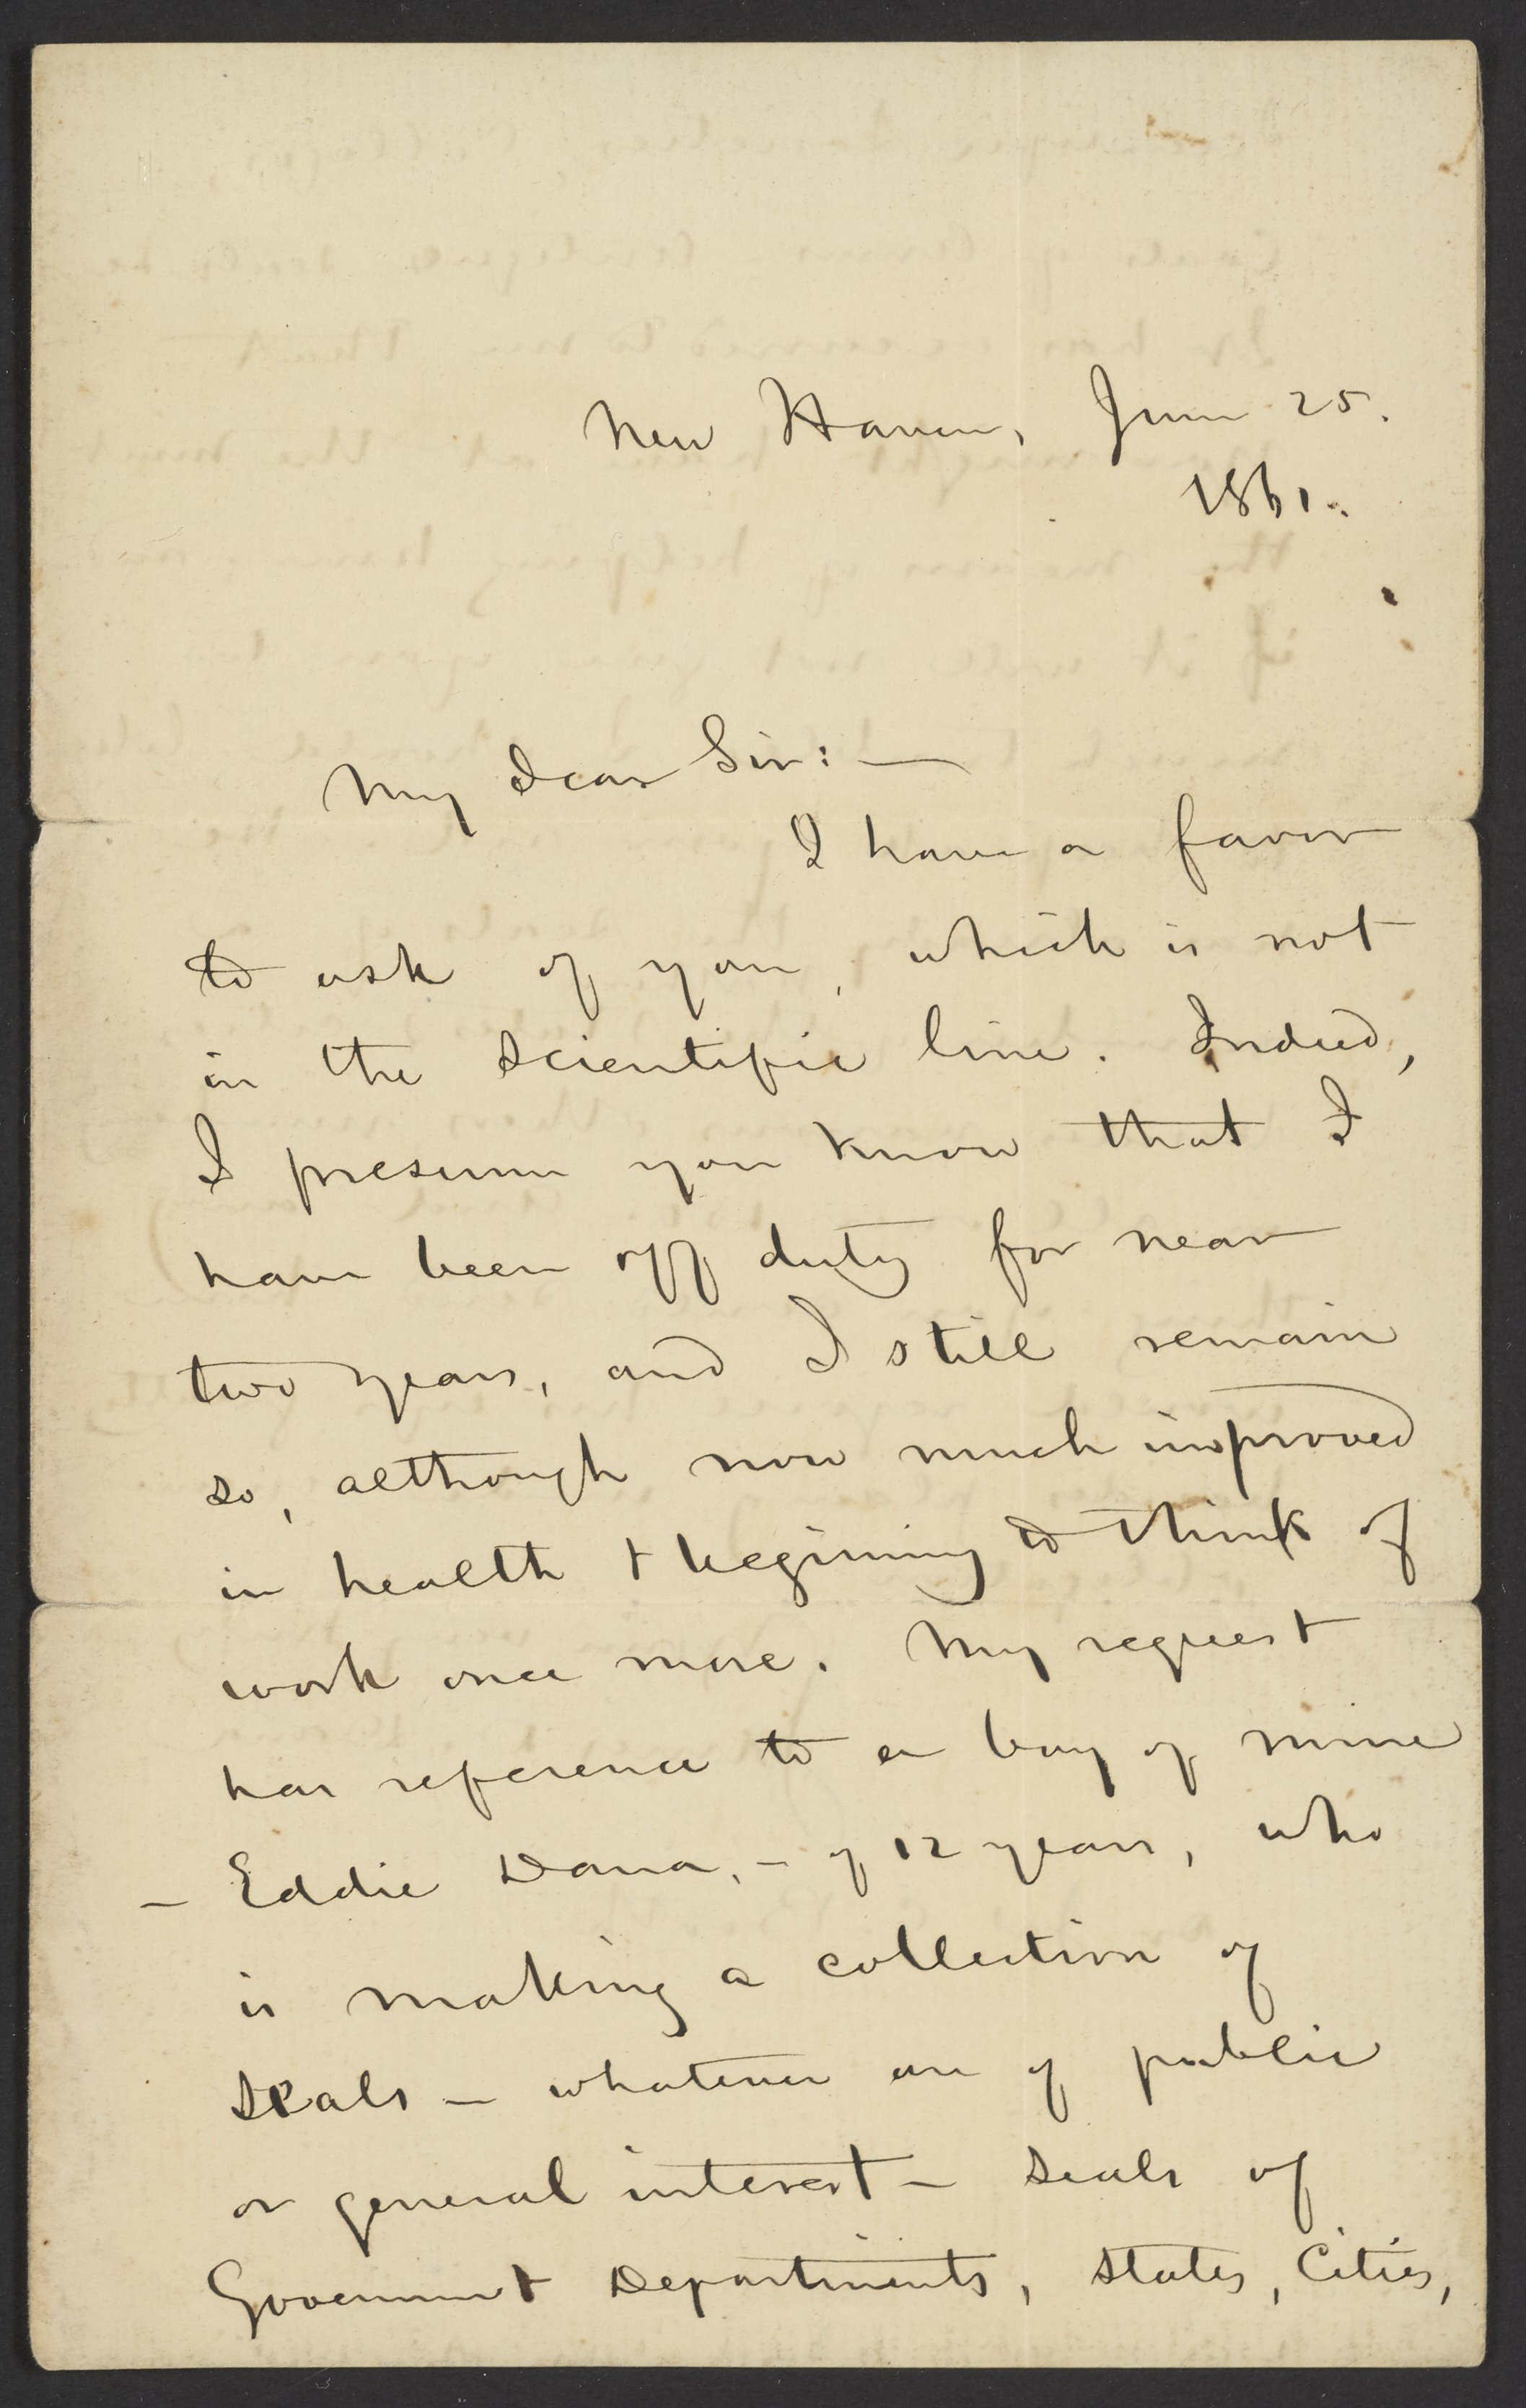 New Haven, June 25.
1861.
My dear Sir: —
I have a favor
to ask of you, which is not
in the scientific line. Indeed,
I presume you know that I
have been off duty for near
two years, and I still remain
so, although now much improved
in health + beginning to think of
work once more. My request
has reference to a boy of mine
– Eddie Dana, – of 12 years, who
is making a collection of
seals – whatever are of public
or general interest – seals of
Government Departments, States, Cities,